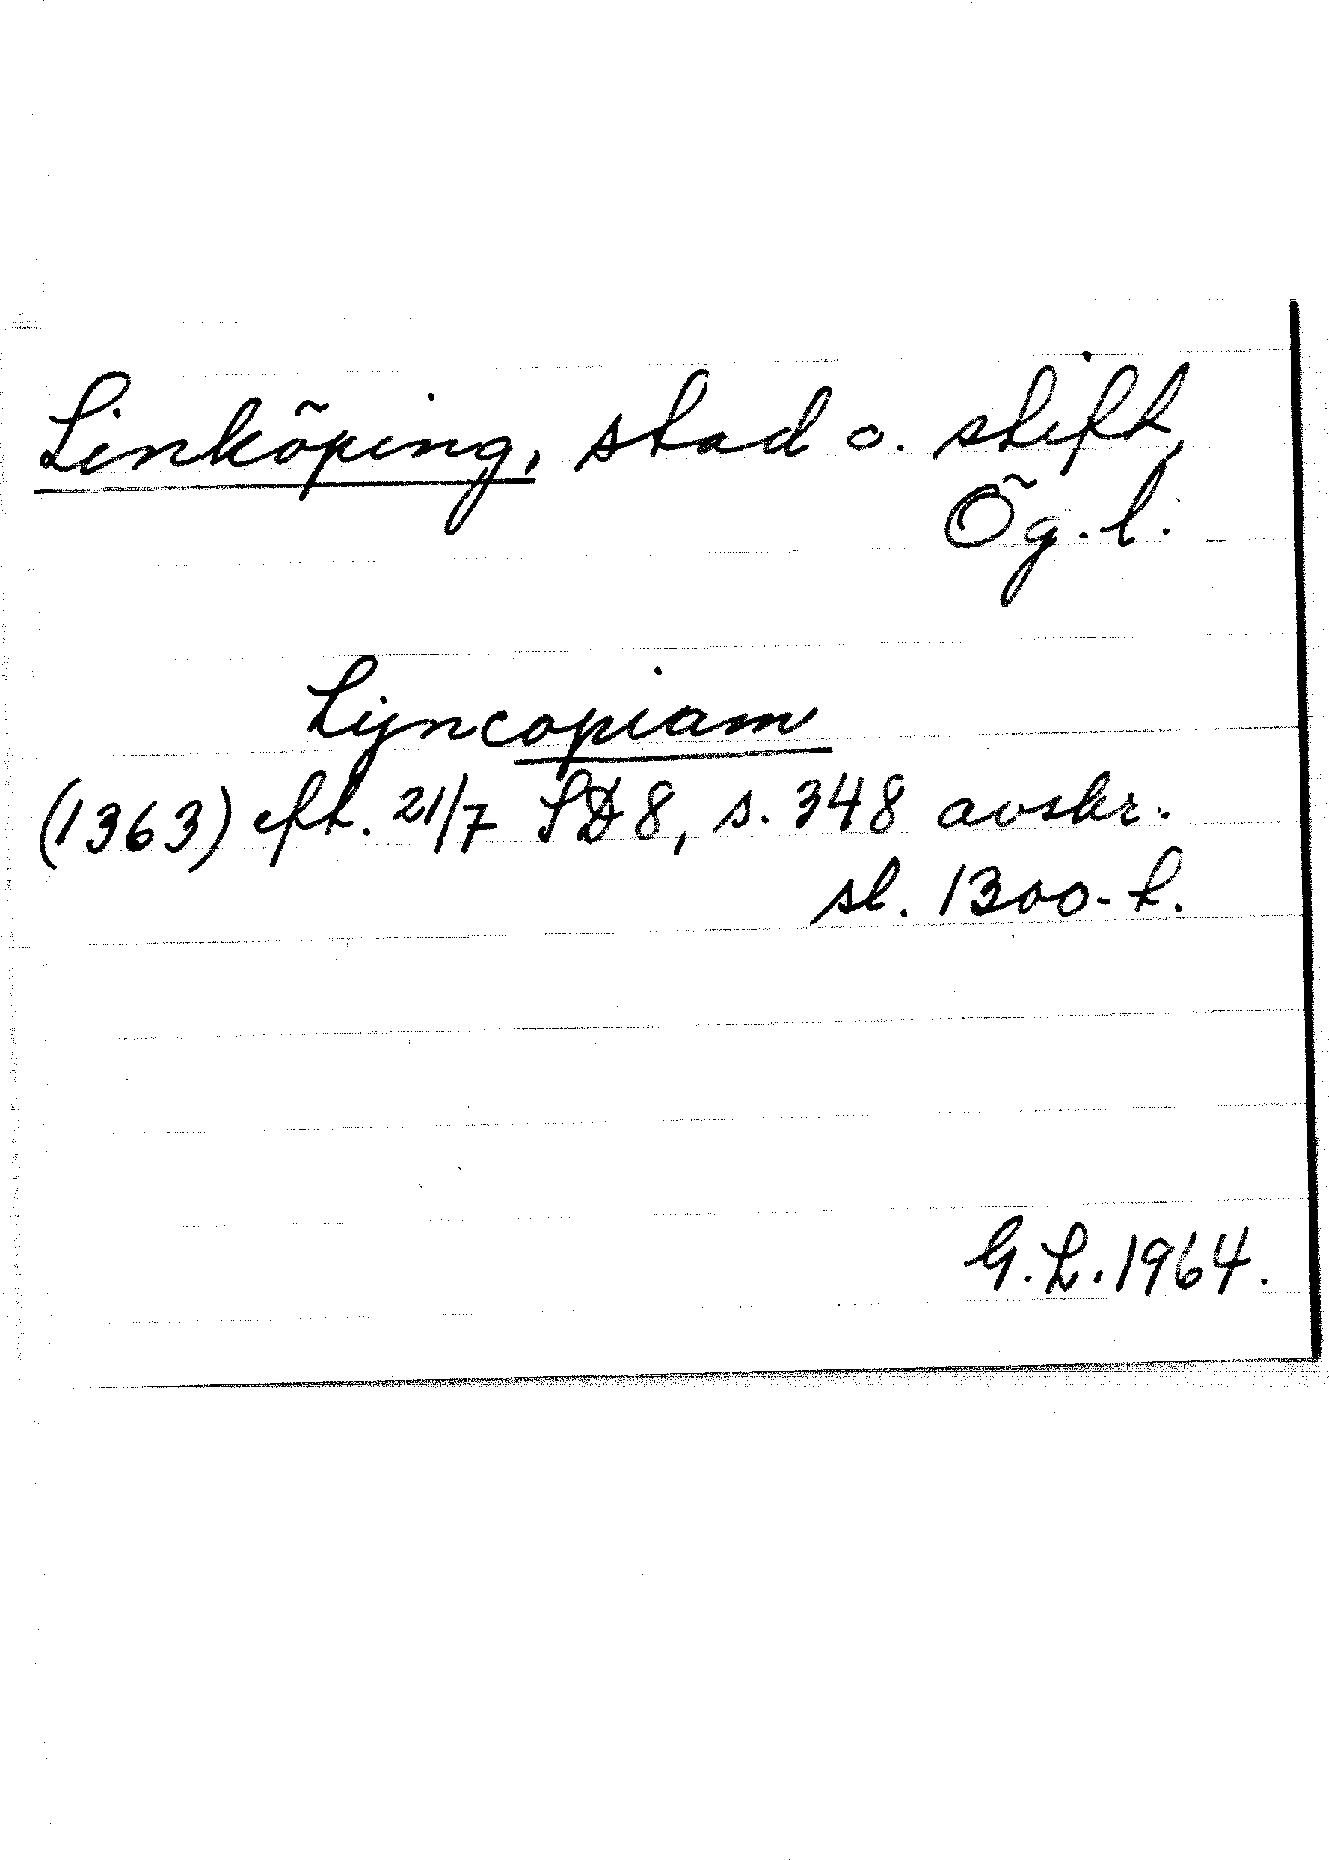 Linköping, stad o. stift,
Ög. l.
Lyncopiam
(1363) eft. 21/7 SD 8, s. 348 avskr.
sl. 1300-t.
G. L. 1964.